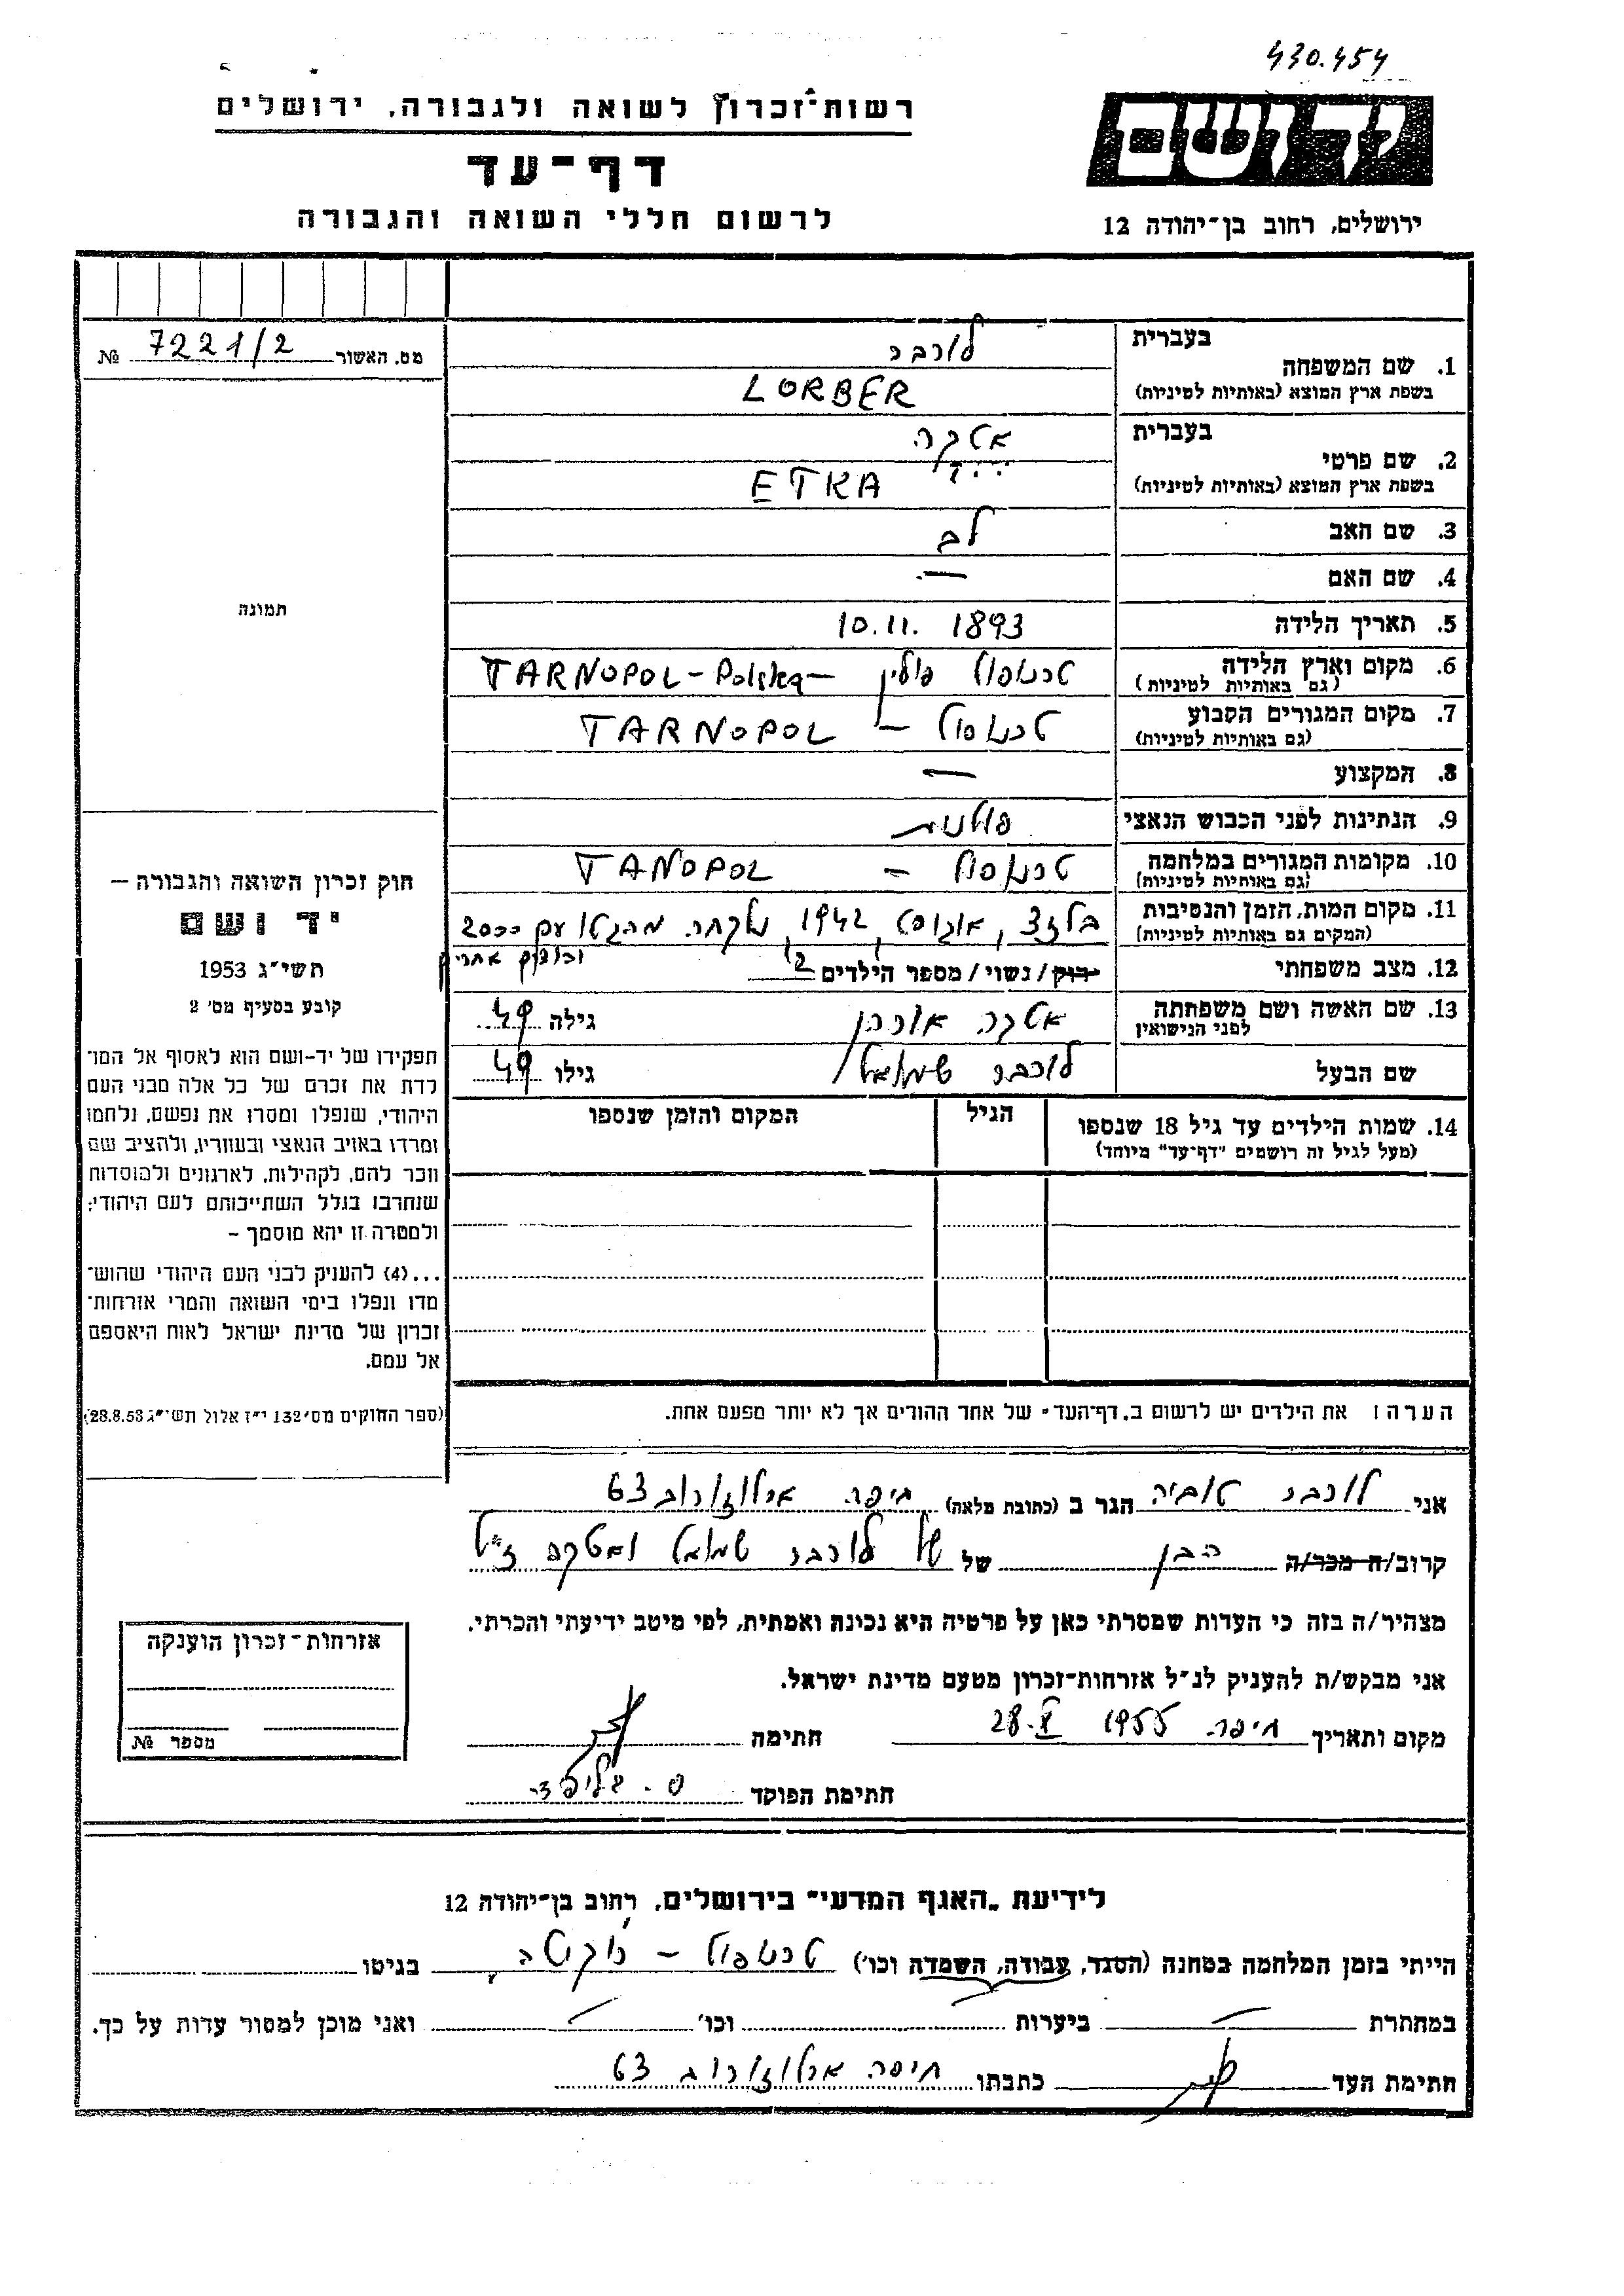 430.454
רשות־זכרון לשואה ולגבורה, ירושלים
יד ושם
דף־עד
לרשום חללי השואה והגבורה
ירושלים, רחוב בן־יהודה 12
מס. האשור 7221/2 №
תמונה
חוק זכרון השואה והגבורה –
יד ושם
תשי״ג 1953
קובע בסעיף מס׳ 2
תפקידו של יד-ושם הוא לאסוף אל המו־
לדת את זכרם של כל אלה מבני העם
היהודי, שנפלו ומסרו את נפשם, נלחמו
ומרדו באויב הנאצי ובעוזריו, ולהציב שם
וזכר להם, לקהילות, לארגונים ולמוסדות
שנחרבו בגלל השתייכותם לעם היהודי;
ולמטרה זו יהא מוסמך –
...(4) להעניק לבני העם היהודי שהוש־
מדו ונפלו בימי השואה והמרי אזרחות־
זכרון של מדינת ישראל לאות היאספם
אל עמם.
(ספר החוקים מס׳ 132 י״ז אלול תשי״ג 28.8.53)
בעברית לורבר
1. שם המשפחה
בשפת ארץ המוצא (באותיות לטיניות) LORBER
בעברית אטקה
2. שם פרטי
בשפת ארץ המוצא (באותיות לטיניות) ETKA
3. שם האב לב
4. שם האם —
5. תאריך הלידה 10.11. 1893
6. מקום וארץ הלידה טרנופול פולין – TARNOPOL - Polska
(גם באותיות לטיניות)
7. מקום המגורים הקבוע טרנופול – TARNOPOL
(גם באותיות לטיניות)
8. המקצוע —
9. הנתינות לפני הכבוש הנאצי פולנית
10. מקומות המגורים במלחמה טרנופול – TANOPOL
(גם באותיות לטיניות)
11. מקום המות, הזמן והנסיבות בלזץ, אוגוסט 1942, נלקחה מהגטו עם 2000
(המקום גם באותיות לטיניות)
12. מצב משפחתי רווק/נשוי/מספר הילדים 2
13. שם האשה ושם משפחתה אטקה גילה 49
לפני הנישואין
שם הבעל לורבר שמואל גילו 49
14. שמות הילדים עד גיל 18 שנספו הגיל המקום והזמן שנספו
(מעל לגיל זה רושמים ״דף־עד״ מיוחד)
הערה: את הילדים יש לרשום ב„דף־העד״ של אחד ההורים אך לא יותר מפעם אחת.
אני לורבר טוביה הגר ב (כתובת מלאה) חיפה ארלוזורוב 63
קרוב/ה מכר/ה הבן של של לורבר שמואל ואטקה ז״ל
מצהיר/ה בזה כי העדות שמסרתי כאן על פרטיה היא נכונה ואמתית, לפי מיטב ידיעתי והכרתי.
אני מבקש/ת להעניק לנ״ל אזרחות־זכרון מטעם מדינת ישראל.
מקום ותאריך חיפה 1955 28.X חתימה
חתימת הפוקד
אזרחות־זכרון הוענקה
מספר №
לידיעת „האגף המדעי״ בירושלים, רחוב בן־יהודה 12
הייתי בזמן המלחמה במחנה (הסגר, עבודה, השמדה וכו׳) טרנופול – בגיטו
במחתרת — ביערות וכו׳ — ואני מוכן למסור עדות על כך.
חתימת העד כתבתו חיפה ארלוזורוב 63